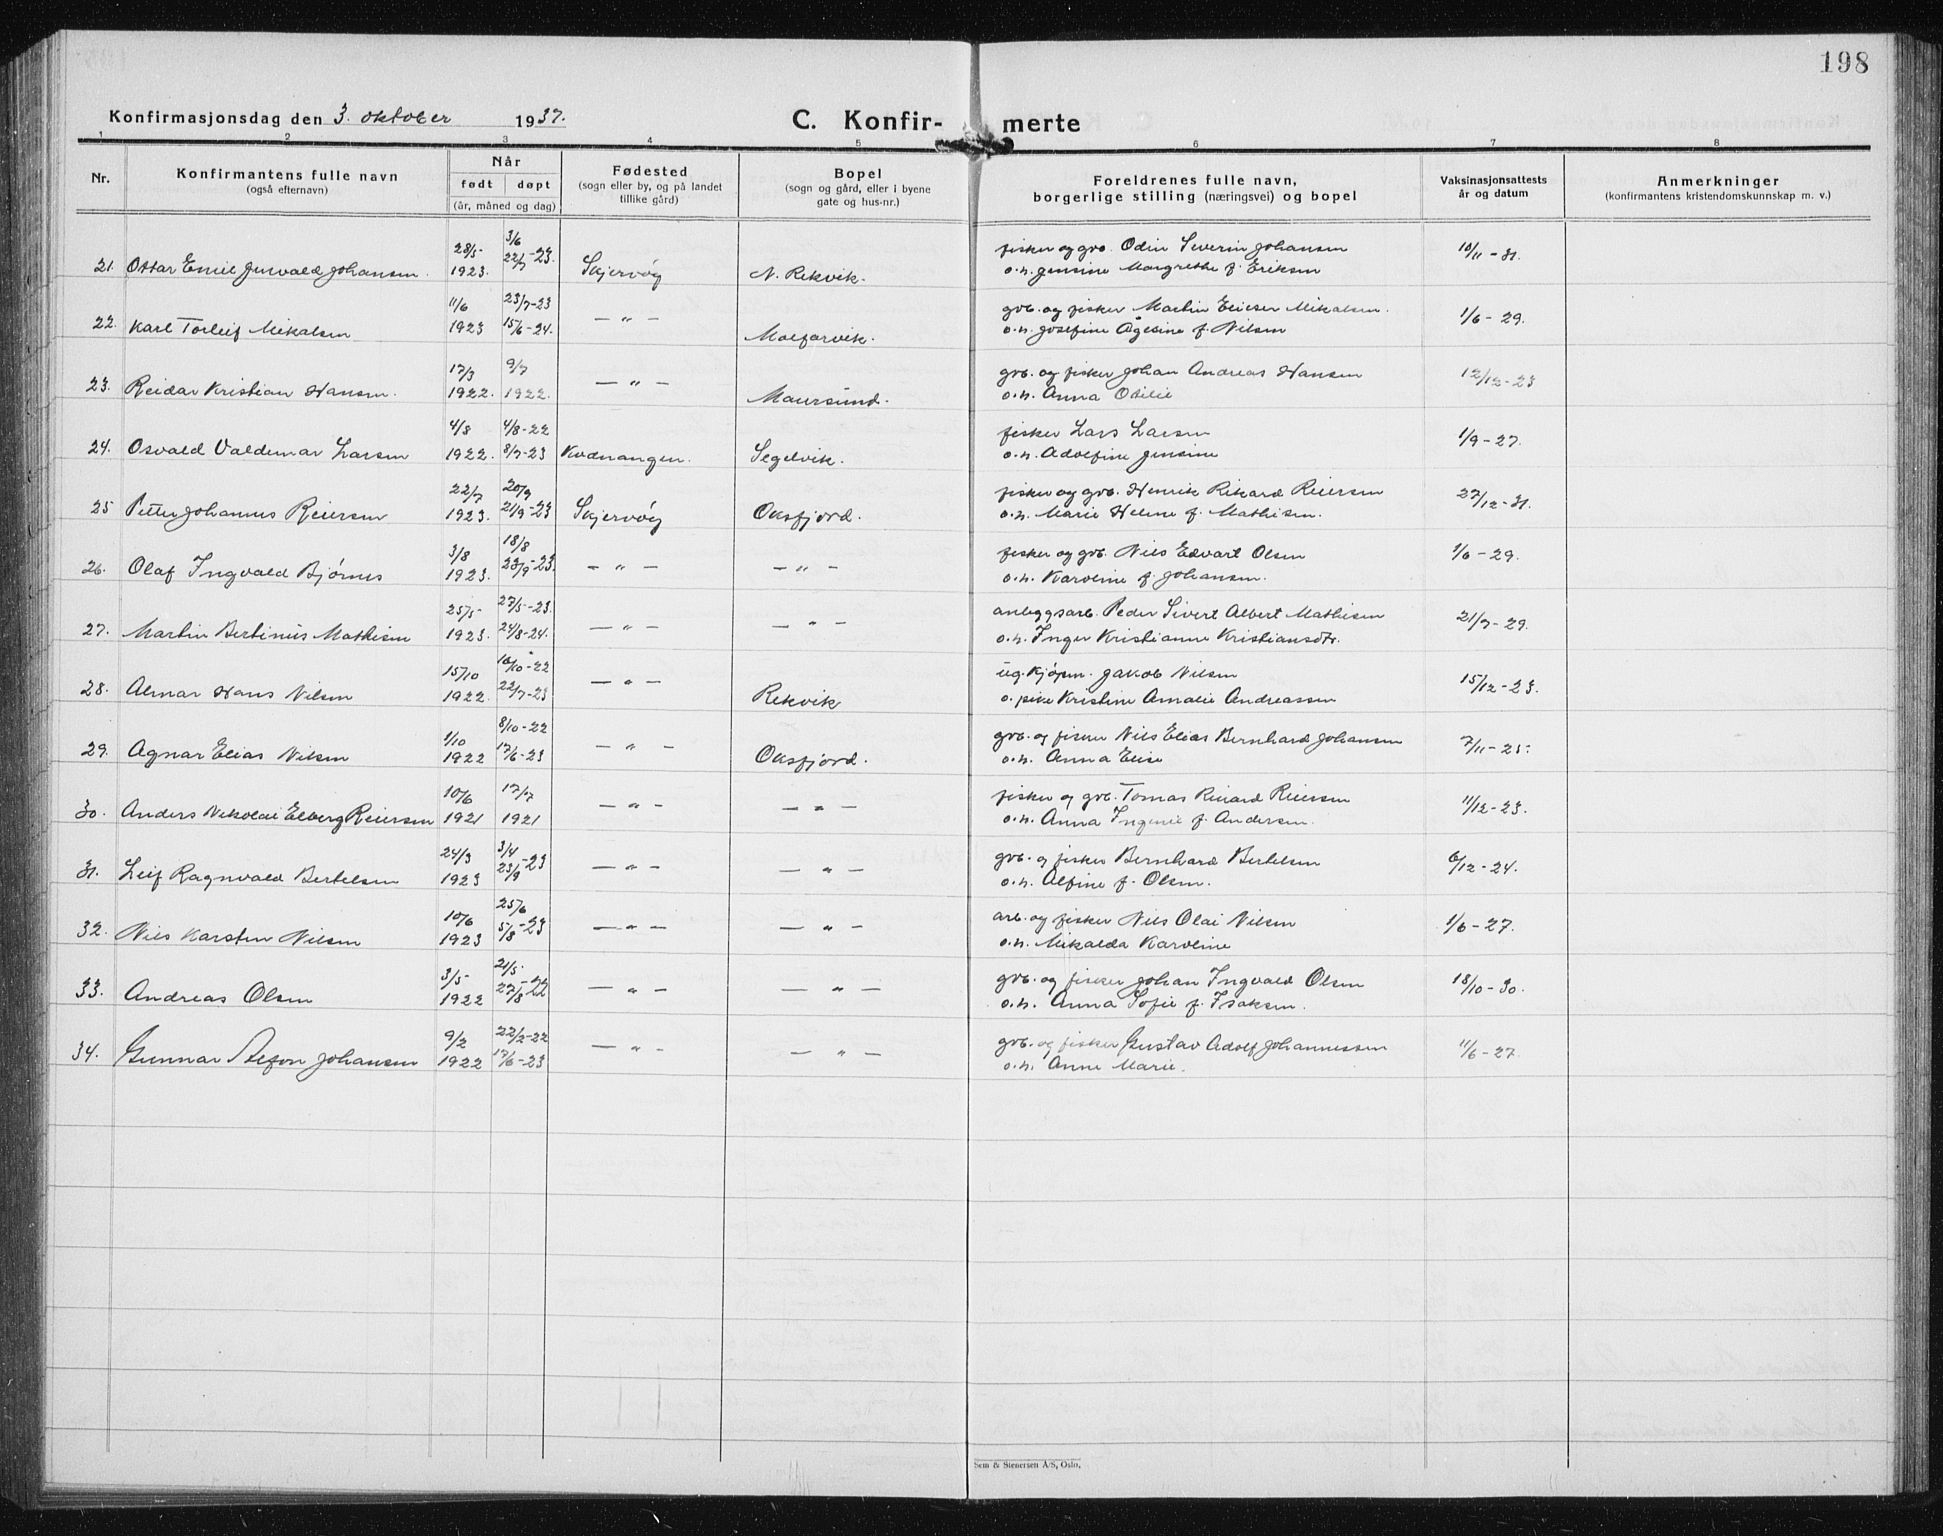 198
Konfirmasjonsdag den 3. oktober 1937.
C. Konfir- merte
1 2 3 4 5 6 7 8
Nr.
Konfirmantens fulle navn
(også efternavn)
Når
født døpt
(år, måned og dag)
Fødested
(sogn eller by, og på landet
tillike gård)
Bopel
(sogn og gård, eller i byene
gate og hus-nr.)
Foreldrenes fulle navn,
borgerlige stilling (næringsvei) og bopel
Vaksinasjonsattests
år og datum
Anmerkninger
(konfirmantens kristendomskunnskap m. v.)
28/5- 3/6 fisker og grb. Odin Severin Johansen 10/11-31.
21. Ottar Emil Johansen. 1923. 22/7-23. Skjervøy N. Rekvik. o.h. Jensine Margrethe f. Eriksen
11/6 23/7-23 grb. og fisker Martin Elieser Mikalsen. 1/6-29.
22. Karl Torleif Mikalsen 1923 15/6-24. — " — o.h. Josefine Ågesine f. Nilsen
17/3 9/7 grb. og fisker Johan Andreas Hansen 12/12-23
23. Reidar Kristian Hansen. 1922. 1922. — " — Maursund. o.h. Anna Otilie
4/8 4/8-22 fisker Lars Larsen 1/9-27.
24. Osvald Valdemar Larsen 1922. 8/7-23 Kvænangen. Segelvik. o.h. Adolfine Jensine
22/7 20/9 fisker og grb. Henrik Rikard Reiersen 27/12-31.
25 Petter Johannes Reiersen 1923. 21/9-23 Skjervøy Oksfjord. o.h. Marie Helene f. Mathisen.
3/8 18/8 fisker og grb. Nils Edvart Olsen 1/6-29.
26. Olaf Ingvald Bjørnes 1923. 23/9-23. — " — — " — o.h. Karoline f. Johansen.
25/5- 27/5-23. anleggsarb. Peder Sivert Albert Mathisen 21/7-29.
27. Martin Bertinus Mathisen 1923. 24/8-24. — " — — " — o.h. Inger Kristianne Kristiansdtr.
15/10 16/10-22 ug. kjøpm. Jakob Nilsen 15/12-23.
28. Almar Hans Nilsen 1922. 22/7-23 — " — Rekvik o. pike Kristine Amalie Andreassen
1/10 8/10-22 grb. og fisker Nils Elias Bernhard Johansen 7/11-23.
29. Agnar Elias Nilsen 1922 17/6-23 — " — Oksfjord. o.h. Anna Elise
10/6 17/7 fisker og grb. Tomas Rikard Reiersen 11/12-23.
30. Anders Nikolai Elberg Reiersen 1921 1921 — " — — " — o.h. Anna f. Andersen.
24/3 3/4 grb. og fisker Bernhard Bertelsen 6/12-24.
31. Leif Ragnvald Bertelsen 1923 23/9-23 — " — — " — o.h. Alfine f. Olsen.
10/6 25/6 arb. og fisker Nils Olai Nilsen 1/6-27.
32. Nils Karsten Nilsen 1923 5/8-23 — " — — " — o.h. Mikalda Karoline
3/5- 21/5- grb. og fisker Johan Ingvald Olsen 18/10-30.
33. Andreas Olsen 1922 27/8-22 — " — — " — o.h. Anna Sofie f. Isaksen.
9/2 22/2-22 grb. og fisker Gustav Adolf Johannessen 11/6-27.
34. Gunnar Alefon Johansen 1922 17/6-23 — " — — " — o.h. Anne Marie.
Sem & Stenersen A/S, Oslo.